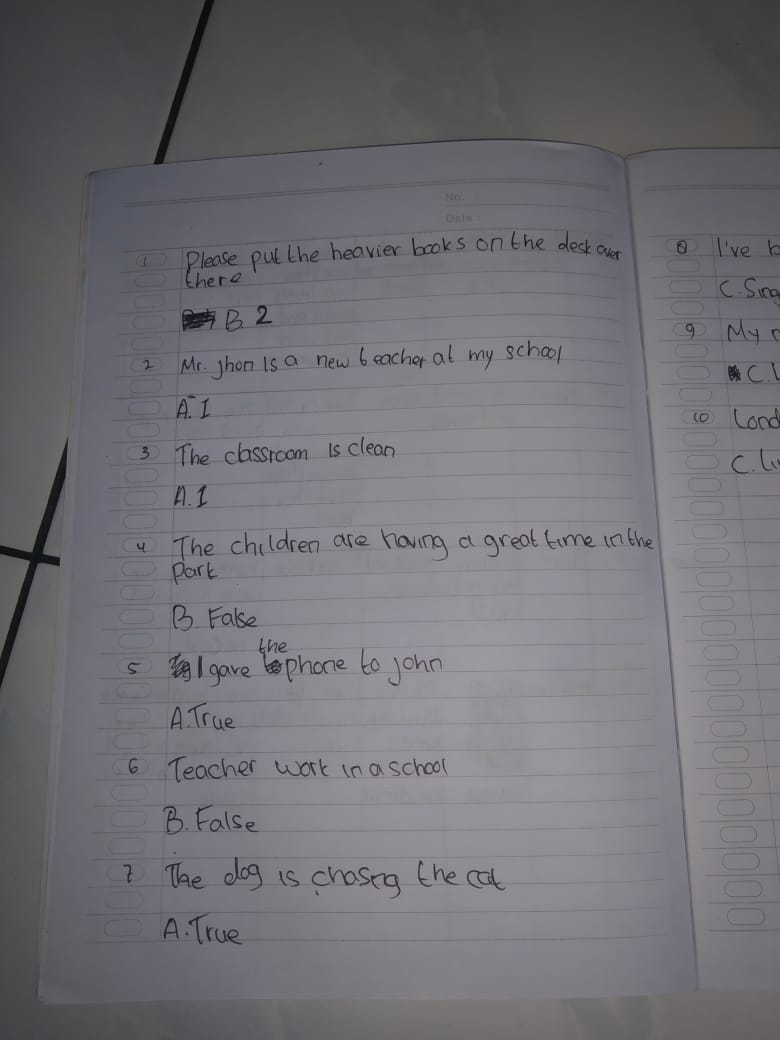 No. :
Date :
1 Please put the heavier books on the desk over
there
B 2
2 Mr. jhon is a new teacher at my school
A. I
3 The classroom is clean
A. I
4 The children are having a great time in the
park
B. False
the
5 I gave phone to john
A. True
6 Teacher work in a school
B. False
7 The dog is chasing the cat
A. True
8 I've
C. Sing
9 My
C. L
10 Lond
C.